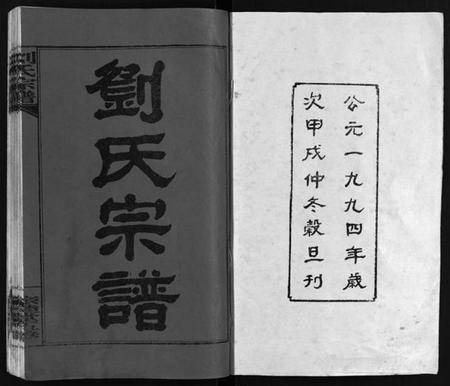 劉氏宗譜
公元一九九四年歲
次甲戌仲冬穀旦刊
劉氏宗譜